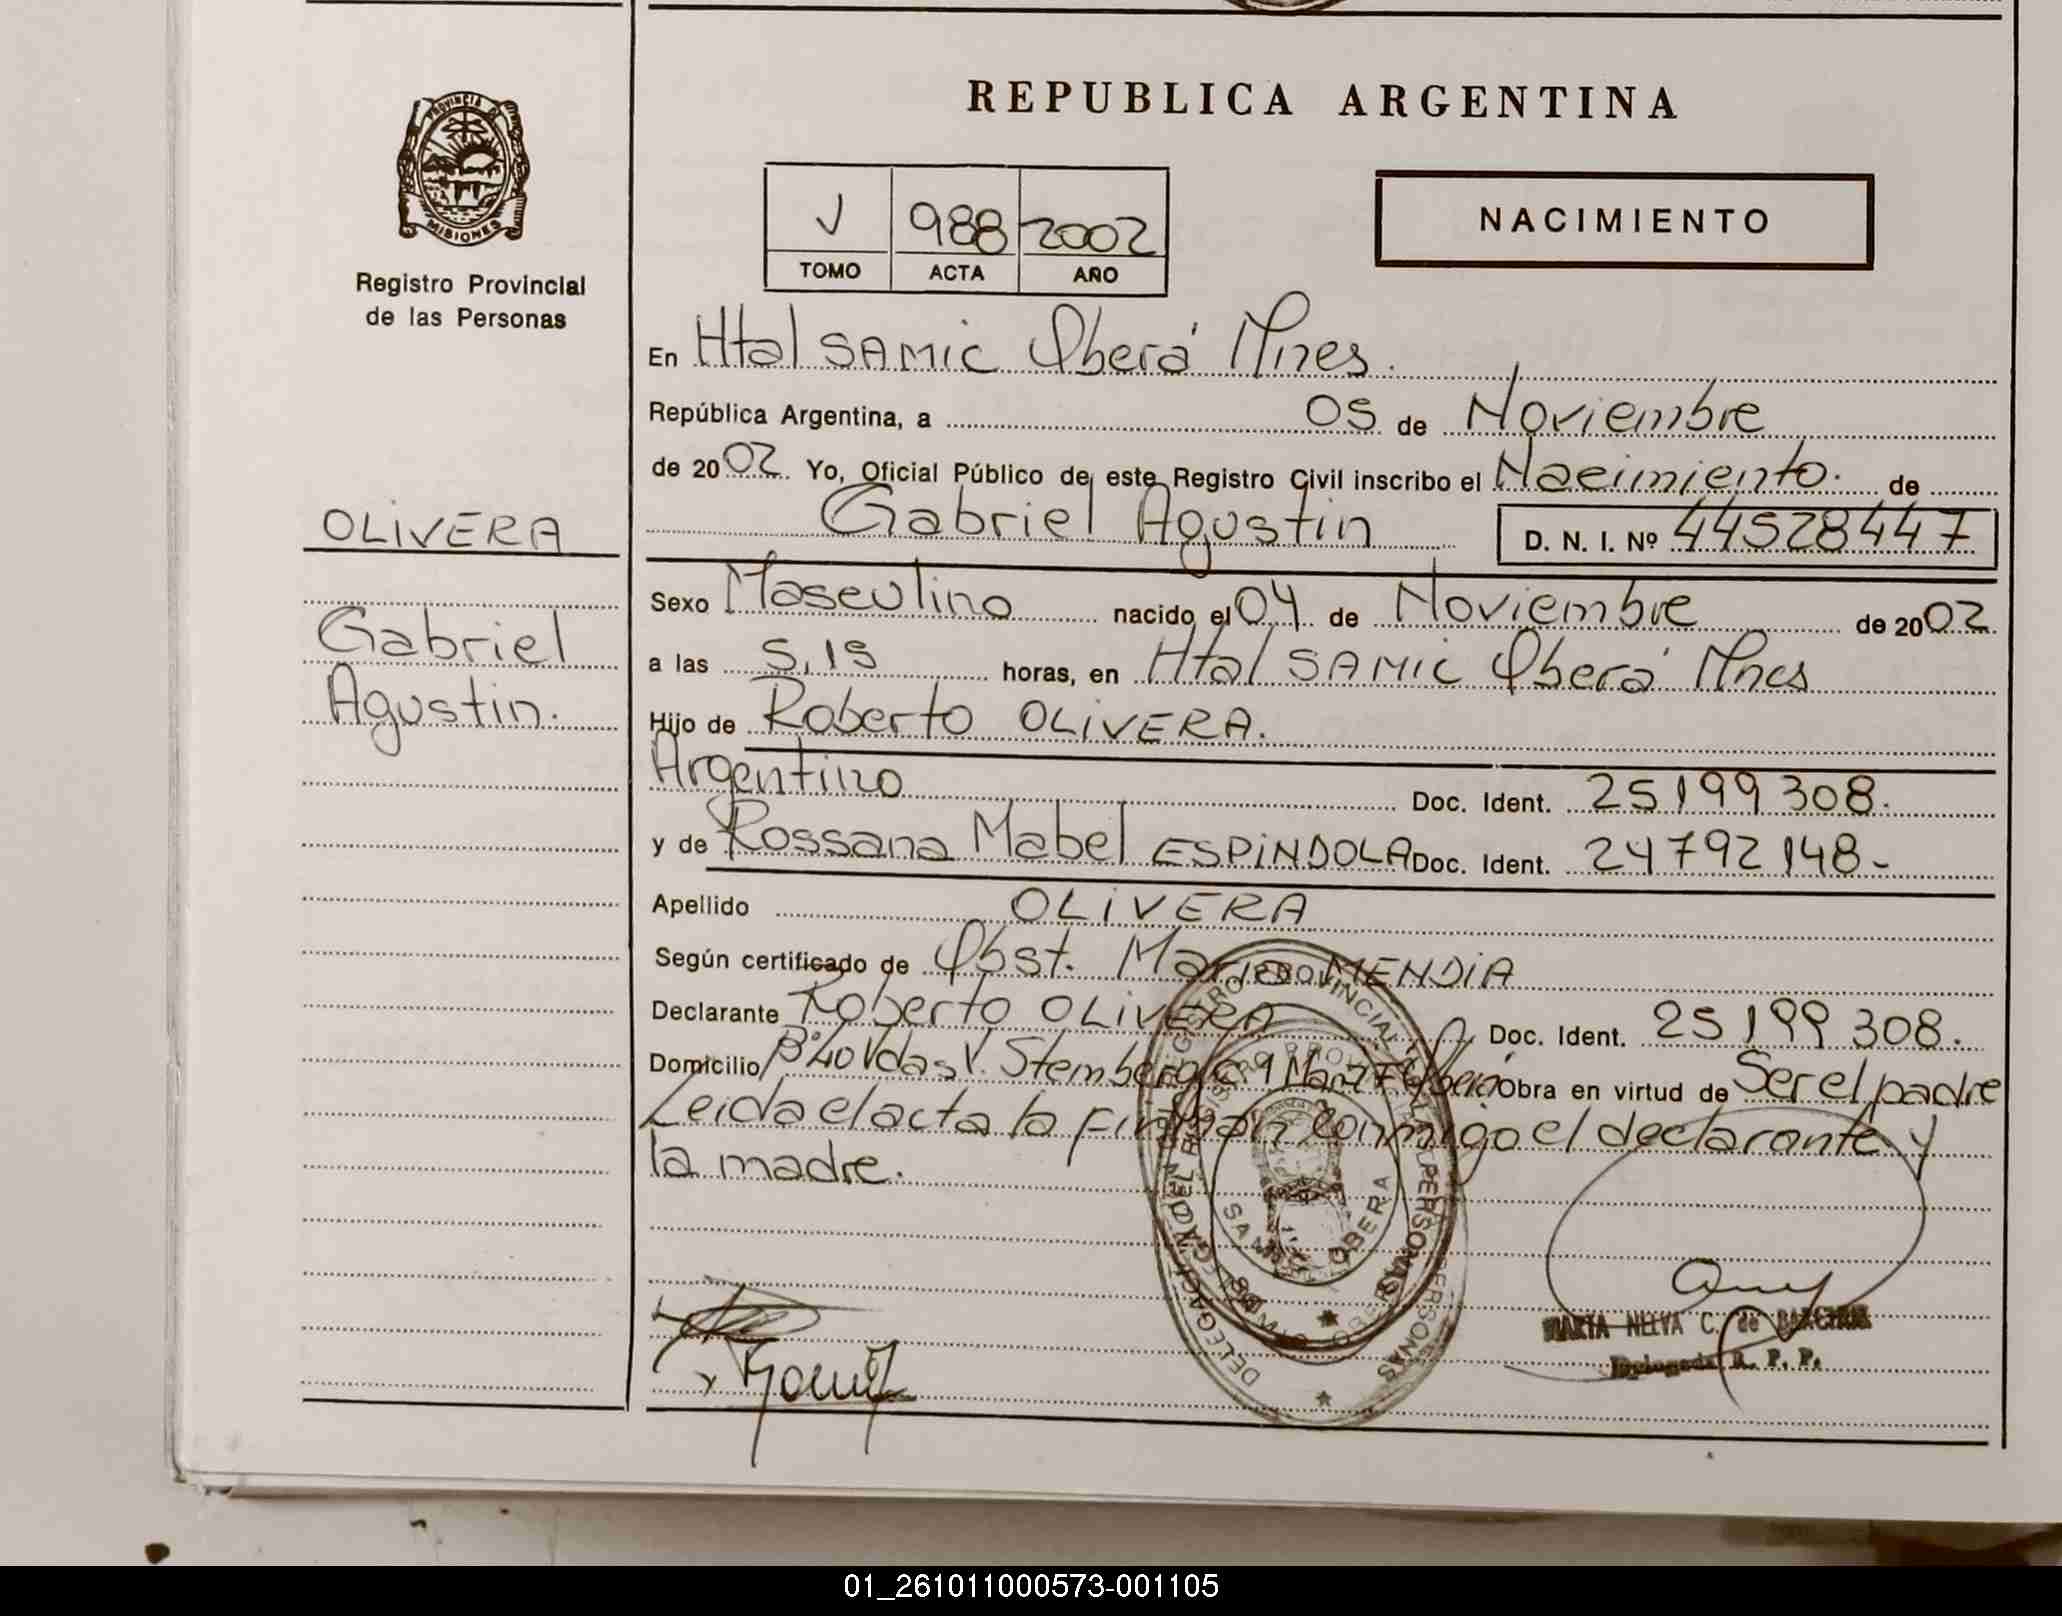 REPUBLICA ARGENTINA
PROVINCIA DE
MISIONES
Registro Provincial
de las Personas
V 988 2002
TOMO ACTA AÑO
NACIMIENTO
En Htal SAMIC Oberá Mnes.
República Argentina, a 05 de Noviembre
de 2002. Yo, Oficial Público de este Registro Civil inscribo el Nacimiento. de
Gabriel Agustin D. N. I. Nº 44528447
OLIVERA
Gabriel
Agustin.
Sexo Masculino nacido el 04 de Noviembre de 2002.
a las 5,15 horas, en Htal SAMIC Oberá Mnes
Hijo de Roberto OLIVERA.
Argentino Doc. Ident. 25199308.
y de Rossana Mabel ESPINDOLA Doc. Ident. 24792148-
Apellido OLIVERA
Según certificado de Obst. Maria MENDIA
Declarante Roberto OLIVERA Doc. Ident. 25199308.
Domicilio Bº 40 Vdas V. Stemberg C. 9 Obra en virtud de Ser el padre
Leida el acta la firman conmigo el declarante y
la madre.
DELEGACION
REGISTRO PROVINCIAL
PERSONAS
SAMIC OBERA
MARTA NELVA C. de
Delegada R. P. P.
01_261011000573-001105